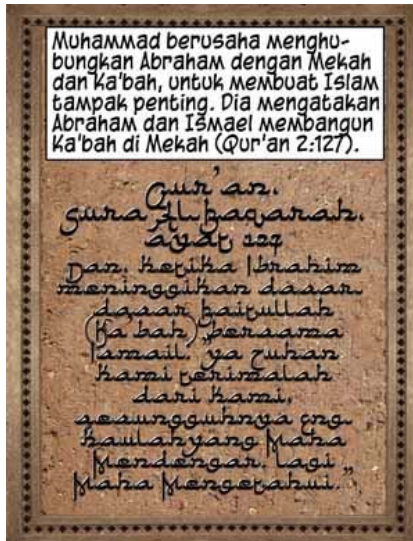 Muhammad berusaha menghu-
bungkan Abraham dengan Mekah
dan Ka'bah, untuk membuat Islam
tampak penting. Dia mengatakan
Abraham dan Ismael membangun
Ka'bah di Mekah (Qur'an 2:127).
Qur'an.
Sura Al-Baqarah.
ayat 127
Dan, ketika Ibrahim
meninggikan dasar
dasar baitullah
(Ka'bah) bersama
Ismail. "ya Tuhan
kami terimalah
dari kami,
sesungguhnya eng-
kaulah yang Maha
Mendengar. Lagi
Maha Mengetahui."